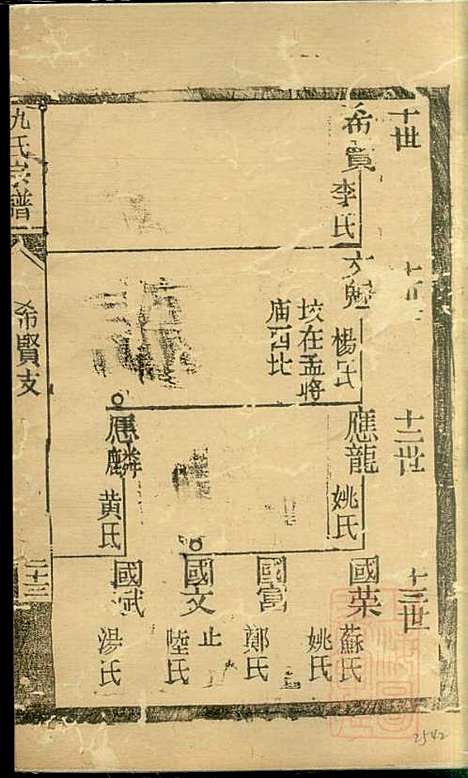 十世
希賢
李氏
文
楊氏
坟在孟將
庙西北
十二世
應龍
姚氏
應麟
黃氏
十三世
國榮
蘇氏
姚氏
國富
鄭氏
國文
止
陸氏
國斌
湯氏
氏宗譜
希賢支
二十三
2542